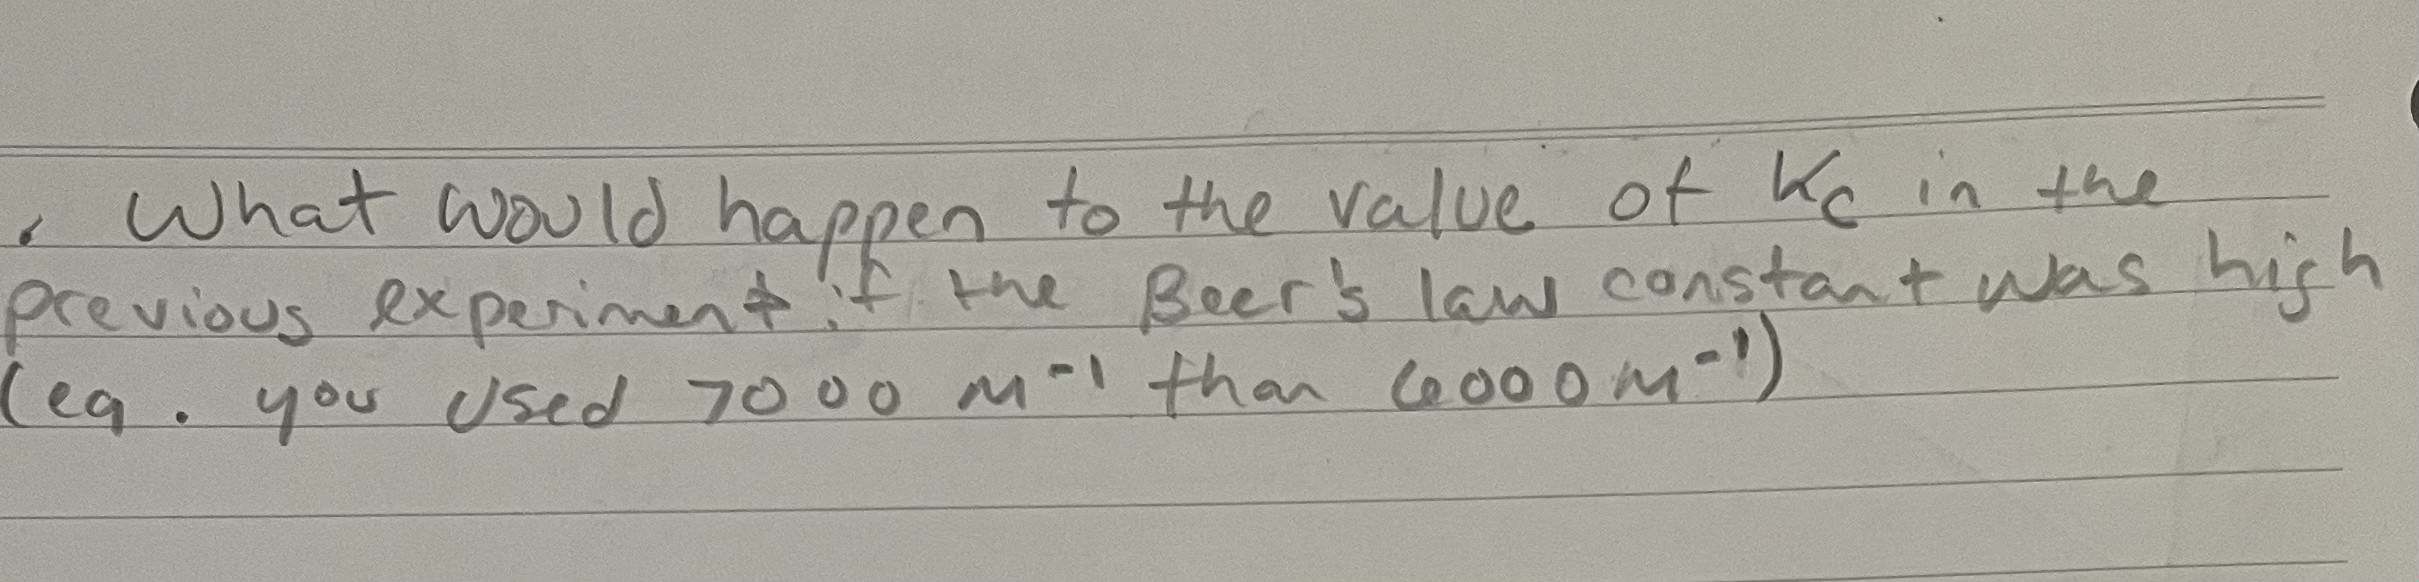 . What would happen to the value of Kc in the
previous experiment if the Beer's law constant was high
(eg. you used 7000 M⁻¹ than 6000 M⁻¹)